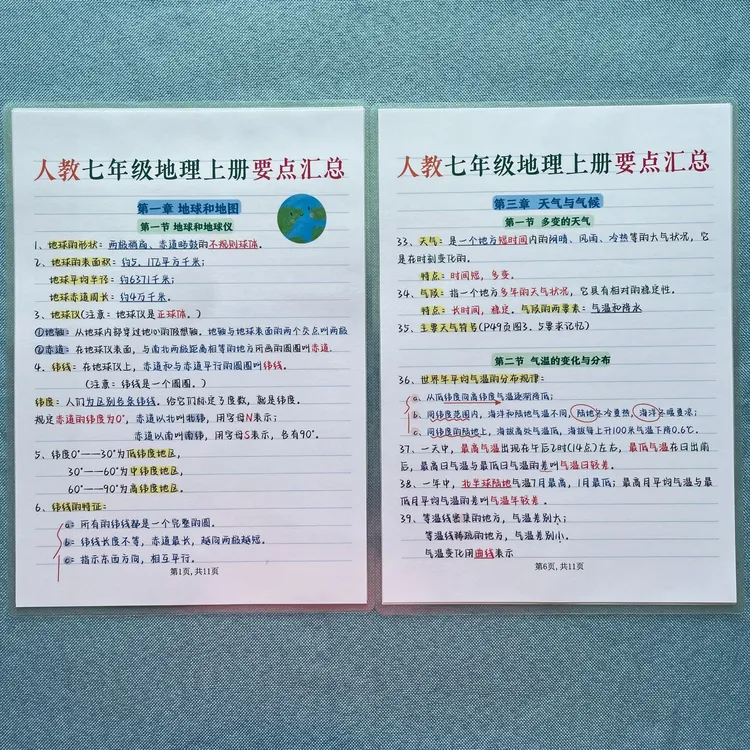 人教七年级地理上册要点汇总
第一章 地球和地图
第一节 地球和地球仪
1、地球的形状：两极稍扁、赤道略鼓的不规则球体。
2、地球的表面积：约5.1亿平方千米；
地球平均半径：约6371千米；
地球赤道周长：约4万千米。
3、地球仪(注意：地球仪是正球体。)
①地轴：从地球内部穿过地心的假想轴。地轴与地球表面的两个交点叫两极
②赤道：在地球仪表面，与南北两极距离相等的地方所画的圆圈叫赤道.
4、纬线：在地球仪上，赤道和与赤道平行的圆圈叫纬线。
(注意：纬线是一个圆圈。)
纬度：人们为区别各条纬线，给它们标定了度数，就是纬度。
规定赤道的纬度为0°，赤道以北叫北纬，用字母N表示；
赤道以南叫南纬，用字母S表示，各有90°。
5、纬度0°——30°为低纬度地区，
30°——60°为中纬度地区，
60°——90°为高纬度地区。
6、纬线的特征：
a：所有的纬线都是一个完整的圆。
b：纬线长度不等，赤道最长，越向两极越短。
c：指示东西方向，相互平行。
第1页，共11页
人教七年级地理上册要点汇总
第三章 天气与气候
第一节 多变的天气
33、天气：是一个地方短时间内的阴晴、风雨、冷热等的大气状况，它
是在时刻变化的。
特点：时间短，多变。
34、气候：指一个地方多年的天气状况，它具有相对的稳定性。
特点：长时间，稳定。气候的两要素：气温和降水
35、主要天气符号(P49页图3.5要求记忆)
第二节 气温的变化与分布
36、世界年平均气温的分布规律：
a、从低纬度向高纬度气温逐渐降低；
b、同纬度范围内，海洋和陆地气温不同，陆地冬冷夏热，海洋冬暖夏凉；
c、同纬度的陆地上，海拔高处气温低，海拔每上升100米气温下降0.6℃.
37、一天中，最高气温出现在午后2时(14点)左右，最低气温在日出前
后，最高日气温与最低日气温的差叫气温日较差。
38、一年中，北半球陆地气温7月最高，1月最低；最高月平均气温与最
低月平均气温的差叫气温年较差。
39、等温线密集的地方，气温差别大；
等温线稀疏的地方，气温差别小.
气温变化用曲线表示
第6页，共11页